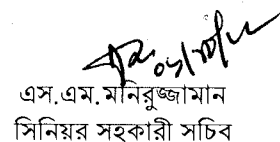 এস.এম. মনিরুজ্জামান
সিনিয়র সহকারী সচিব